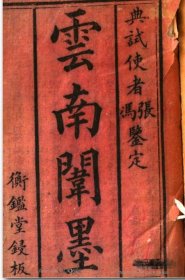 典試使者張馮鑒定
雲南闈墨
衡鑑堂鋟板